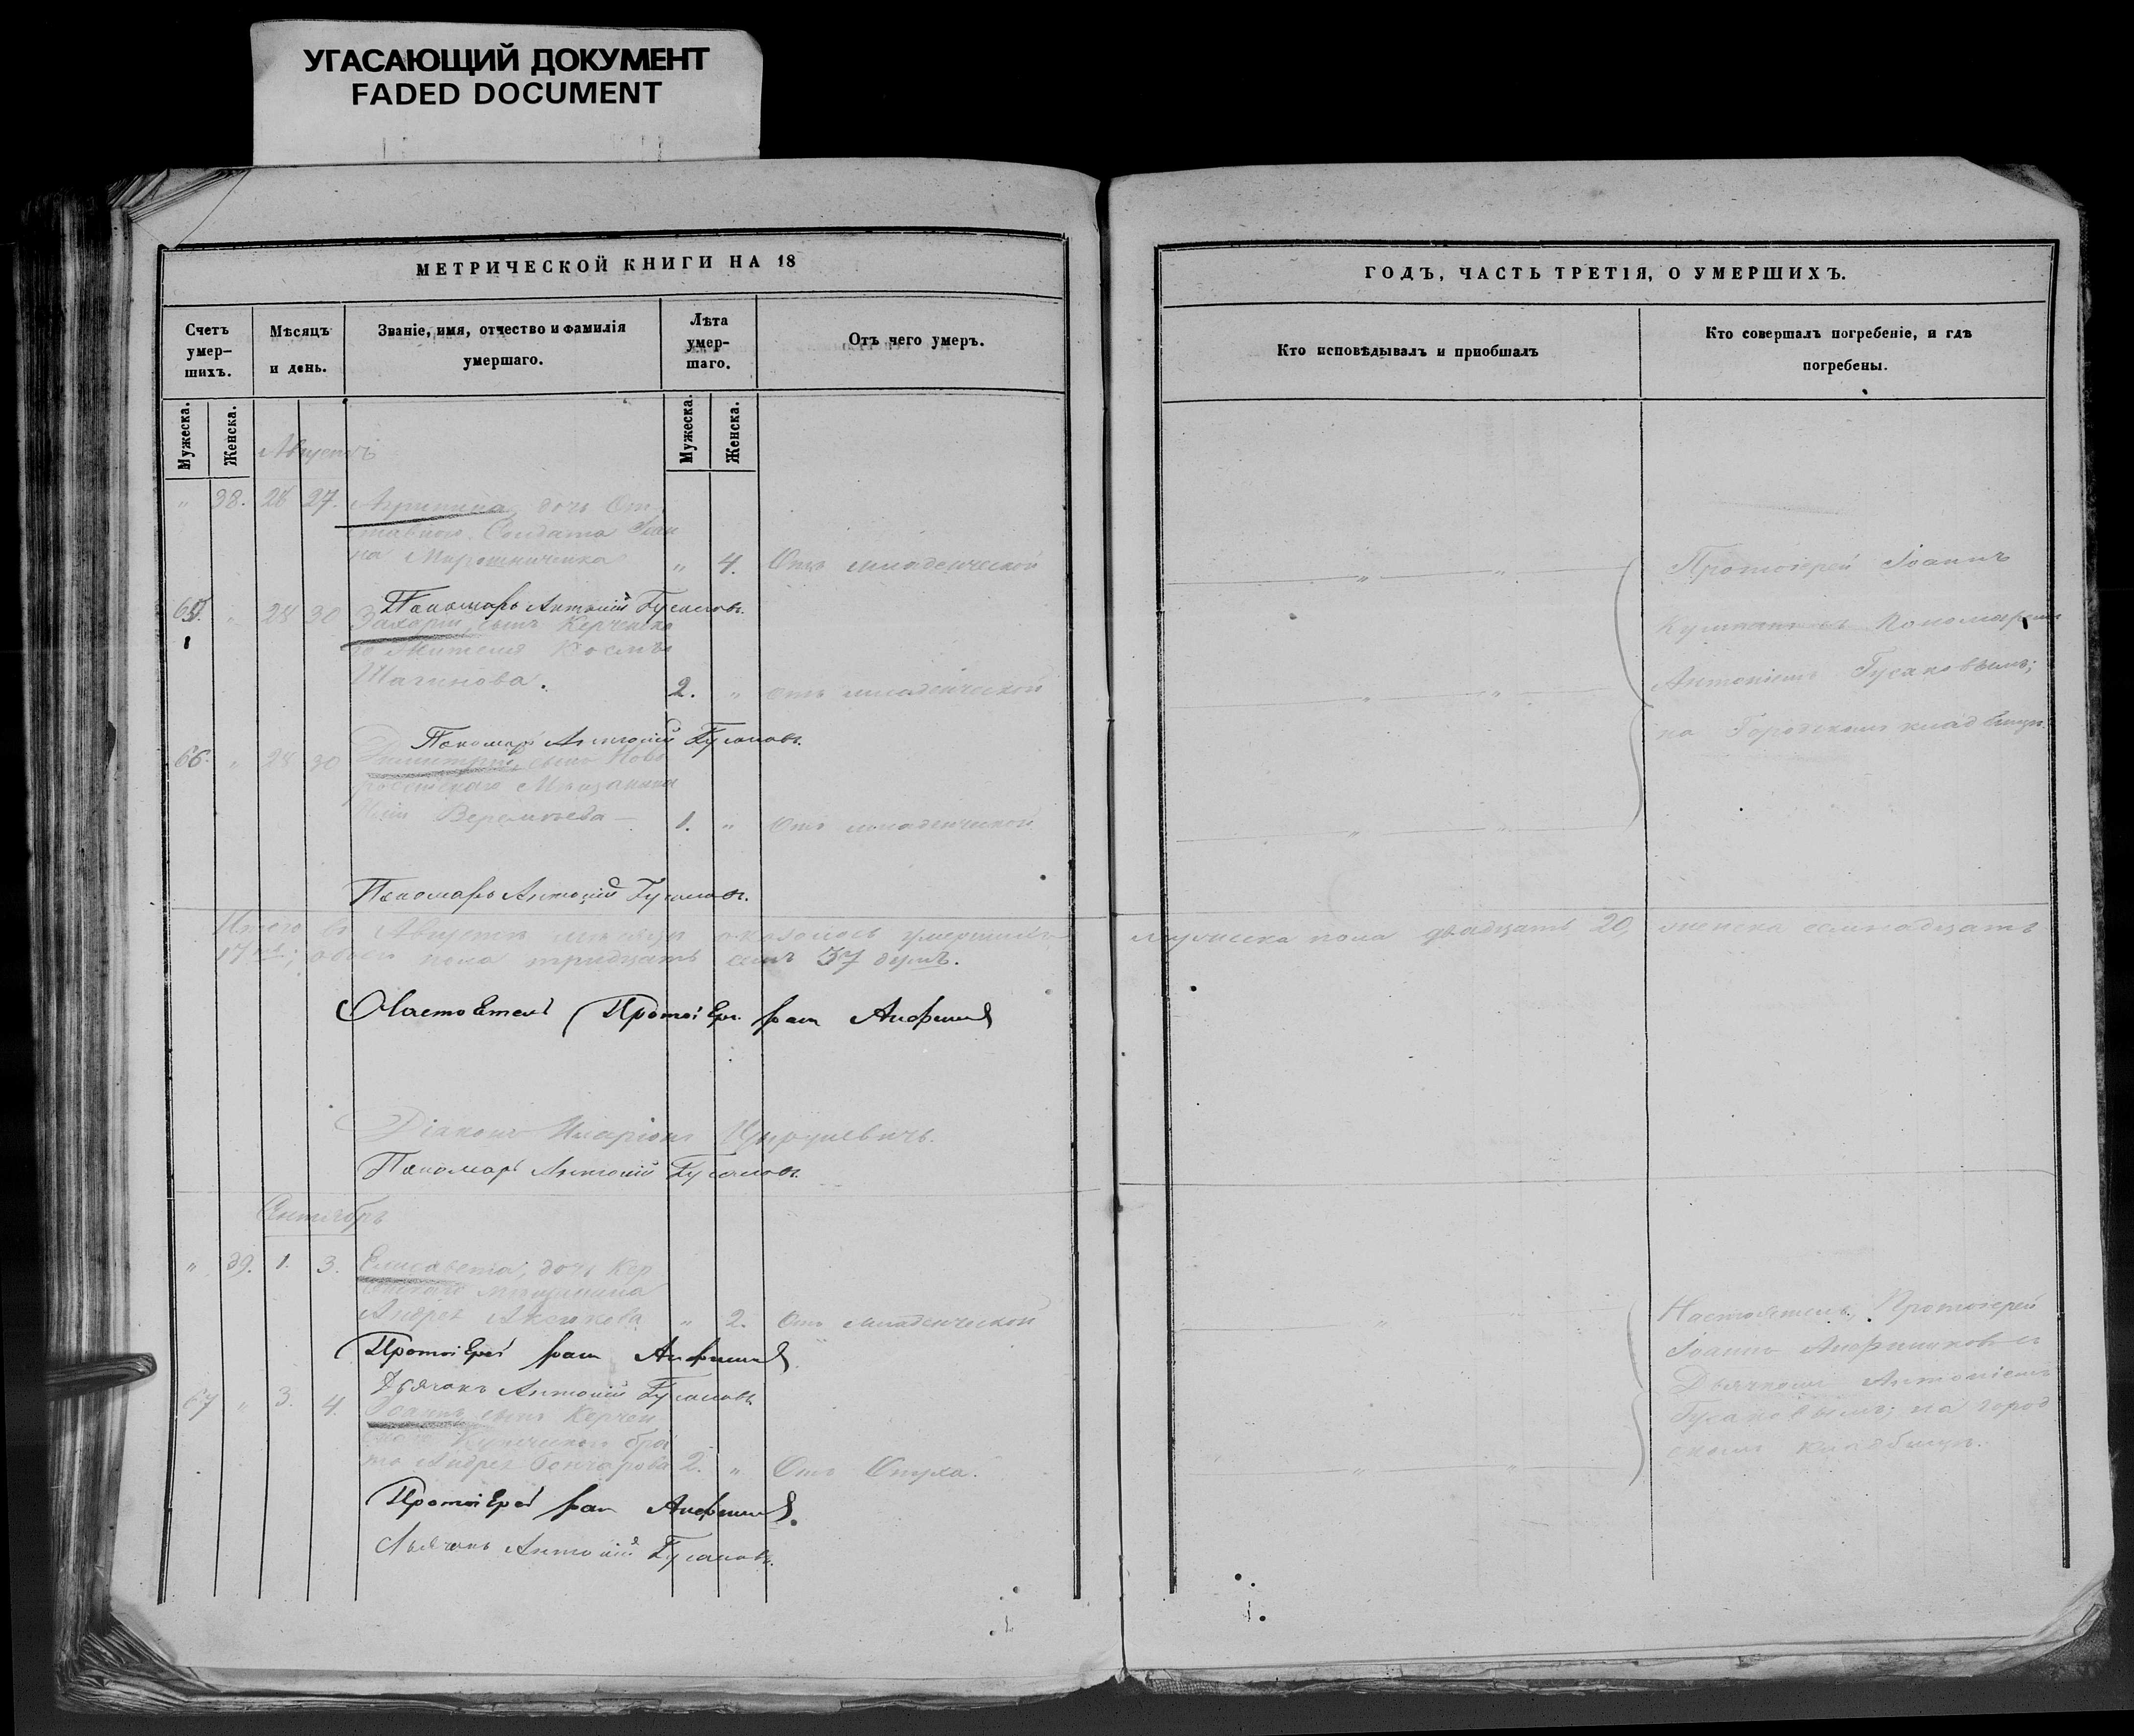 УГАСАЮЩИЙ ДОКУМЕНТ
FADED DOCUMENT
МЕТРИЧЕСКОЙ КНИГИ НА 18
Счетъ умер–шихъ.
Мѣсяцъ и день.
Званіе, имя, отчество и фамилія умершаго.
Лѣта умер-шаго.
Отъ чего умеръ.
Мужеска.
Женска.
Мужеска.
Женска.
Августъ
" 38. 26 27. Агрипина, дочь От
ставного Солдата Іоан
на Мирошниченка " 4. Отъ младенческой
Пономарь Антоній Гусаковъ.
65. " 28 30 Захарій, сынъ Керченска
го Жителя Космы
Шагинова. 2. " отъ младенческой
Пономарь Антоній Гусаковъ.
66. " 28 30 Димитрій, сынъ Ново
россійскаго Мѣщанина
Веремѣева 1. " Отъ младенческой
Пономарь Антоній Гусаковъ.
Итого въ Августѣ мѣсяцѣ оказалось умершихъ
17; обоего пола тридцать семь 37 душъ.
Настоятель Протоіерей
Діаконъ Иларіонъ
Пономарь Антоній Гусаковъ.
Сентябрь
" 39. 1. 3. Елисавета, дочь Кер
ченскаго мѣщанина
Андрея " 2. Отъ младенческой
Протоіерей
Дьячокъ Антоній Гусаковъ
67 " 3. 4. Іоаннъ сынъ Керчен
скаго Купеческаго бра
та Андрея Гончарова 2. "
Протоіерей
Дьячокъ Антоній Гусаковъ.
ГОДЪ, ЧАСТЬ ТРЕТІЯ, О УМЕРШИХЪ.
Кто исповѣдывалъ и приобщалъ
Кто совершалъ погребеніе, и гдѣ погребены.
Протоіерей Іоаннъ
съ Пономаремъ
Антоніемъ Гусаковымъ;
на Городскомъ кладбищѣ.
мужеска пола двадцать 20, женска семнадцать
Настоятель, Протоіерей
Іоаннъ съ
Дьячкомъ Антоніемъ
Гусаковымъ; на город
скомъ кладбищѣ.